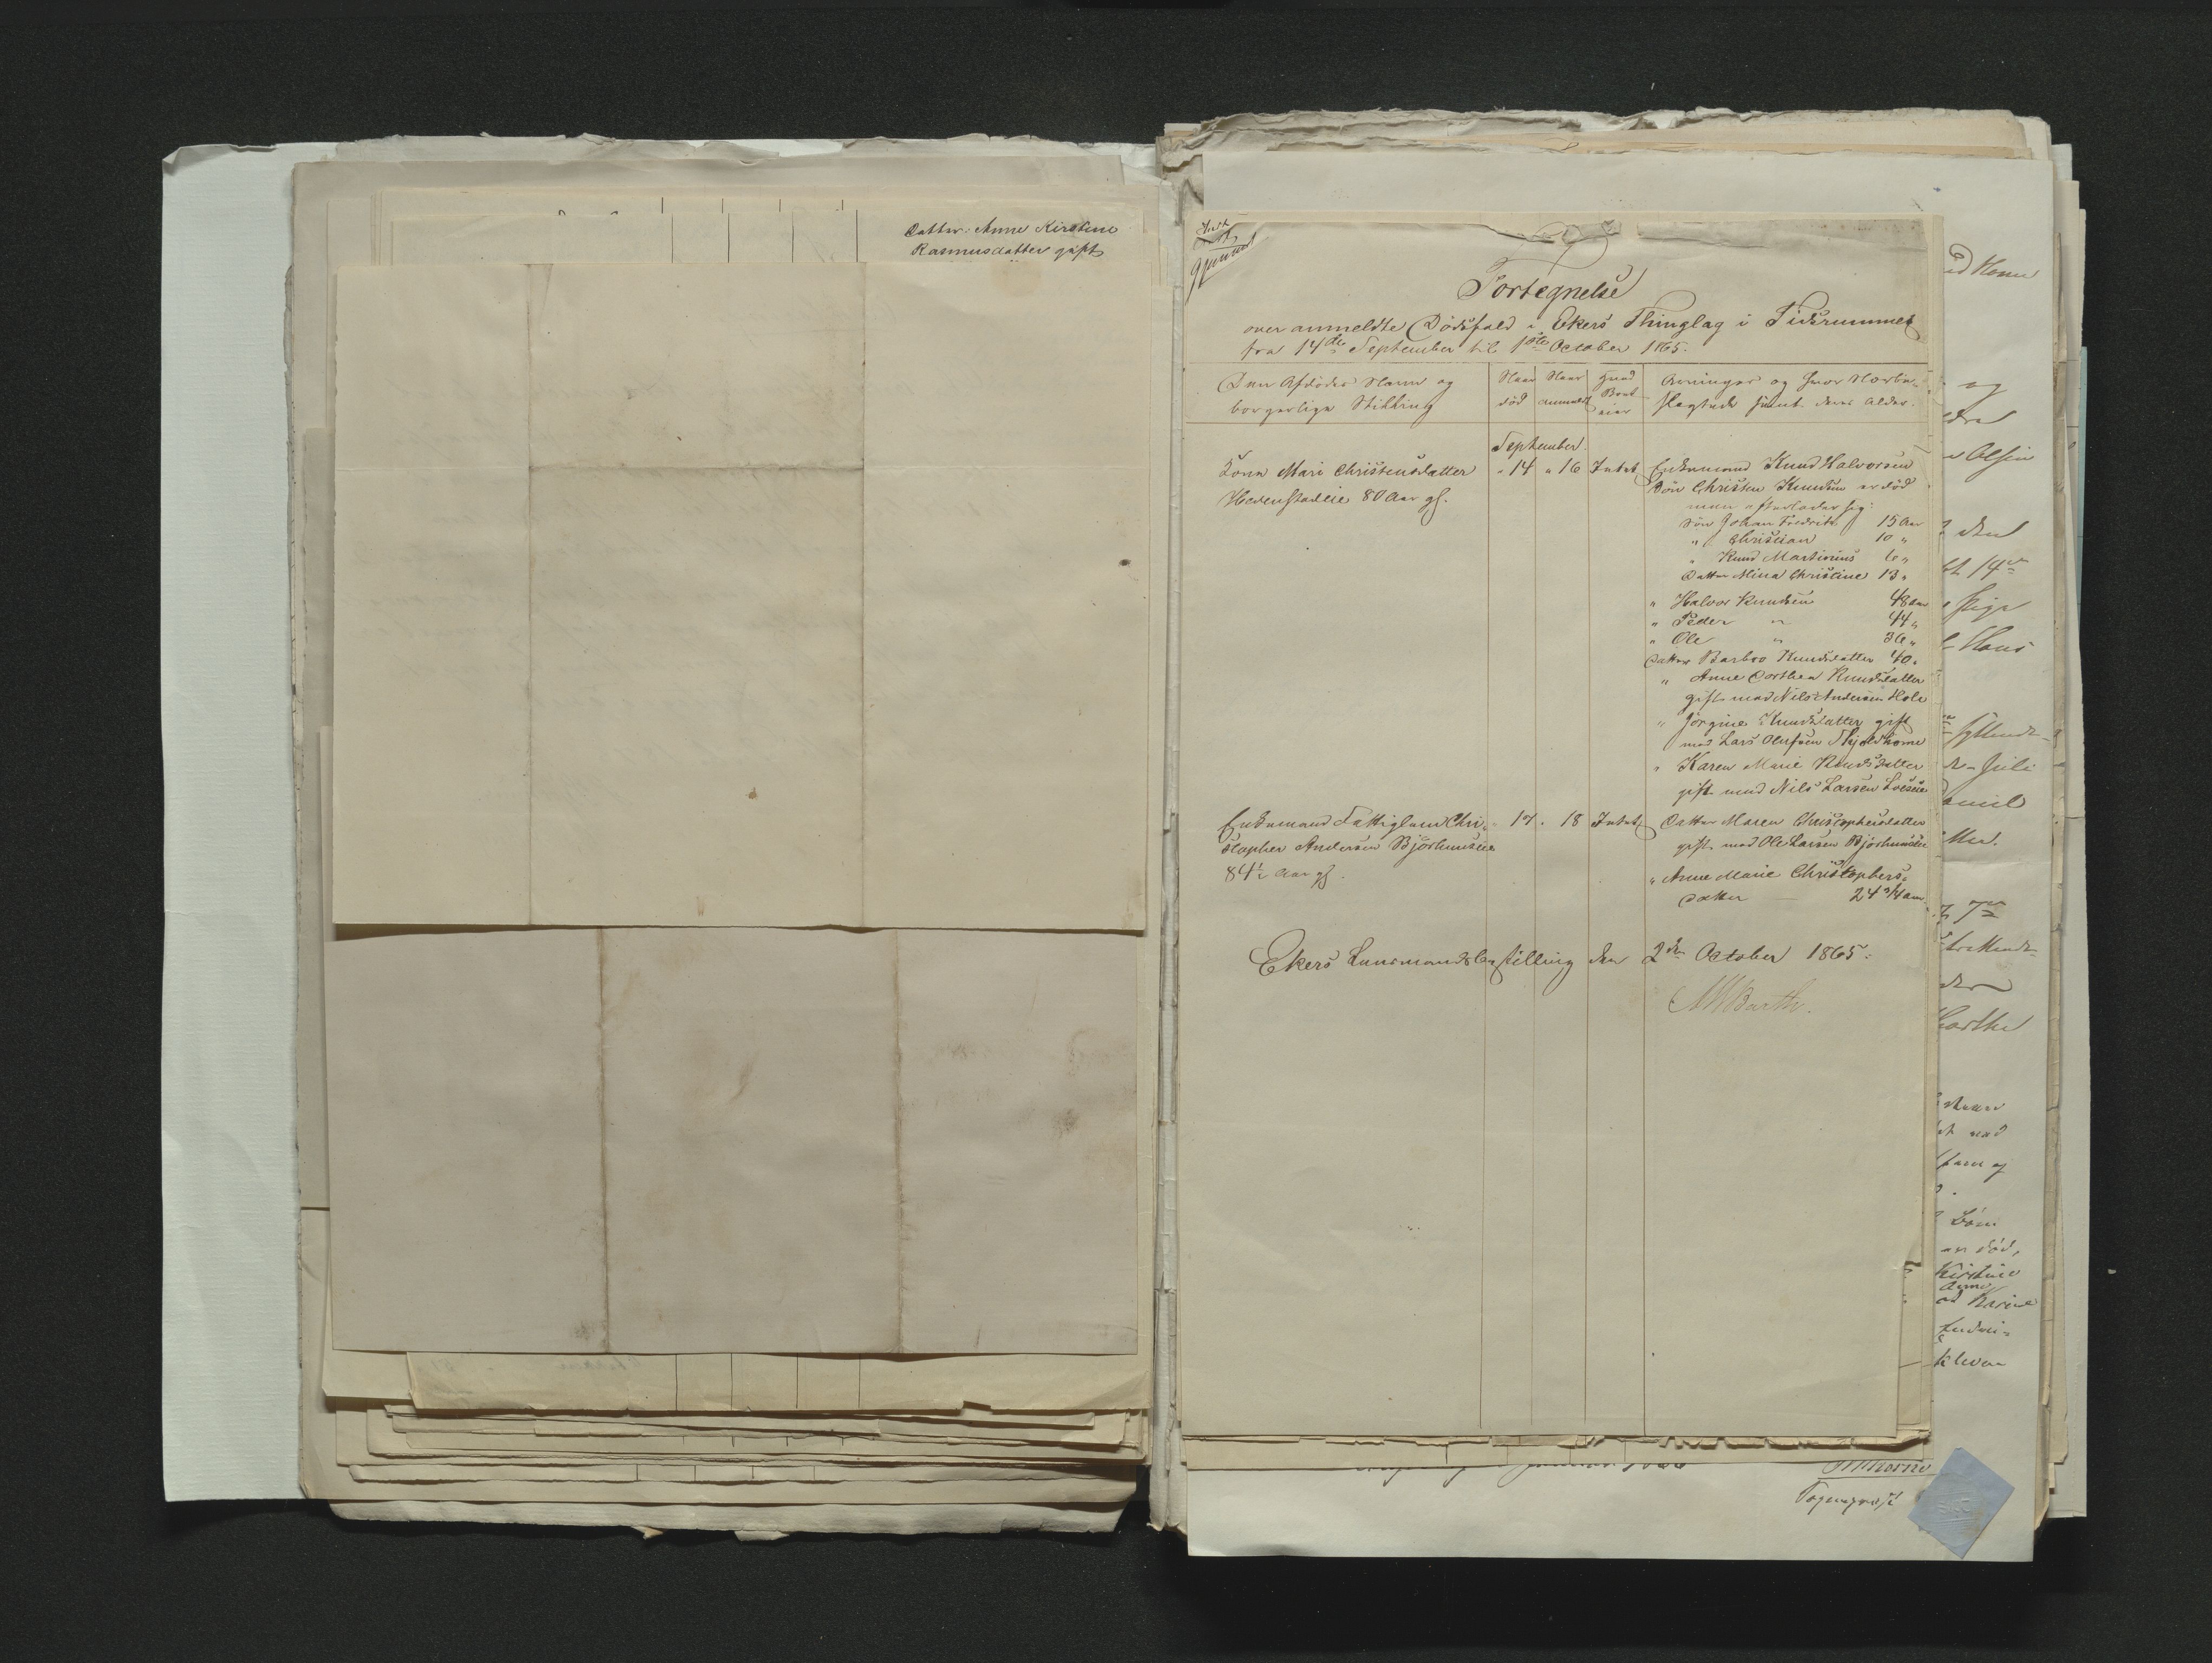 Datter: Anne Kirstine
Rasmusdatter gift
Fortegnelse
over anmeldte Dødsfald i Ekers Thinglag i Tidsrummet
fra 14de September til 1ste October 1865.
Den Afdødes Navn og
borgerlige Stilling
Naar
død
Naar
anmeldt
Hvad
Boet
eier
Arvinger og hvor Nærbe-
slægtede samt deres Alder.
September
Kone Mari Christensdatter
Hedenstadeie 80 Aar gl.
" 14 " 16 Intet
Enkemand Knud Halvorsen
Søn Christen Knudsen er død
men efterlader sig:
Søn Johan Fredrik 15 Aar
" Christian 10 "
" Knud Martinius 6 "
Datter Mina Christine 13 "
" Halvor Knudsen 48 Aar
" Peder " 44 "
" Ole " 36 "
Datter Barbro Knudsdatter 40 "
" Anne Dorthea Knudsdatter
gift med Nils Andersen Hole
" Jørgine Knudsdatter gift
med Lars Olufsen
" Karen Marie Knudsdatter
gift med Nils Larsen
Enkemand Fattiglem Chri-
stopher Andersen Bjørhuuseie
84½ Aar gl.
" 17 " 18 Intet
Datter Maren Christophersdatter
gift med Ole Larsen Bjørhuuseie
" Anne Marie Christophers-
datter — 24 3/4 Aar
Ekers Lensmandsbestilling den 2den October 1865.
Barth.
og
Olsen
den
14
Hans
Juli
7
Marthe
er død,
Kirstine
Anne
Karine